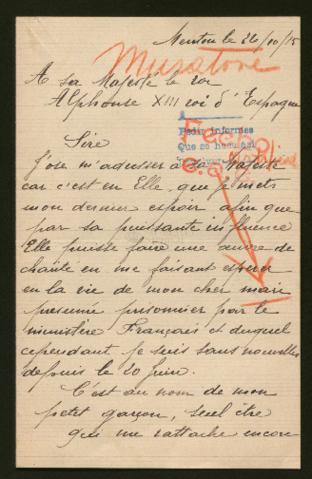 Menton le 26/10/15
Muratore
A sa Majesté le roi
Alphonse XIII roi d'Espagne
Sire
Pedir informes
Que se ha
J'ose m'adresser à Sa Majesté
car c'est en Elle, que je mets
mon dernier espoir afin que
par sa puissante influence
Elle puisse faire une œuvre de
charité en me faisant espérer
en la vie de mon cher mari
présumé prisonnier par le
ministère Français et duquel
cependant je suis sans nouvelles
depuis le 20 Juin.
C'est au nom de mon
petit garçon, seul être
qui me rattache encore